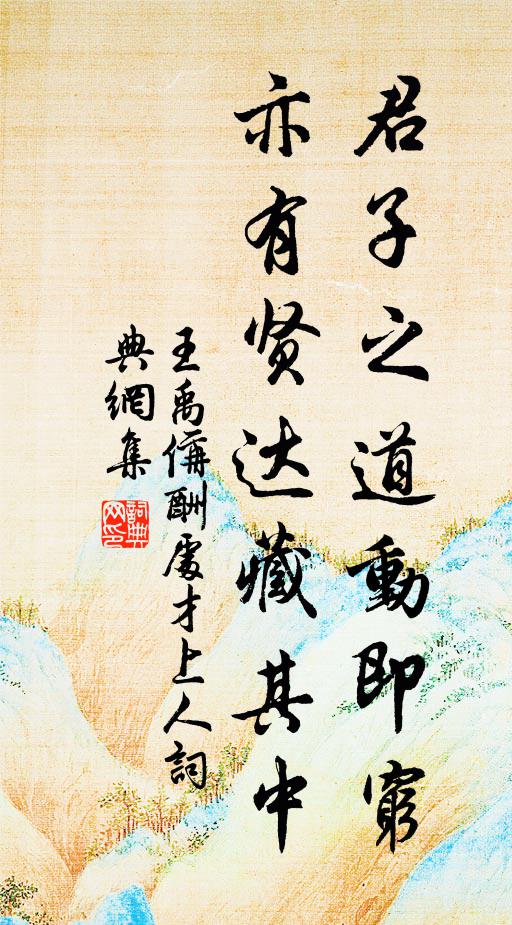 君子之道動即窮
亦有贤达藏其中
王禹偁酬處才上人詞
典網集
詞典
网印